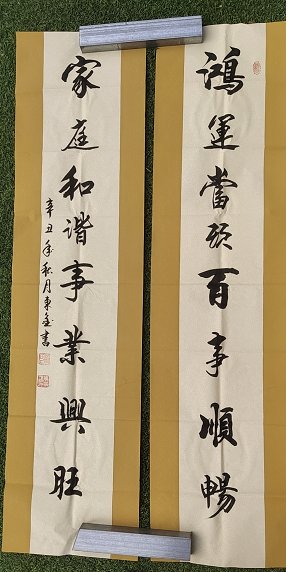 鴻運當頭百事順暢
家庭和谐事業興旺
辛丑年秋月東金書